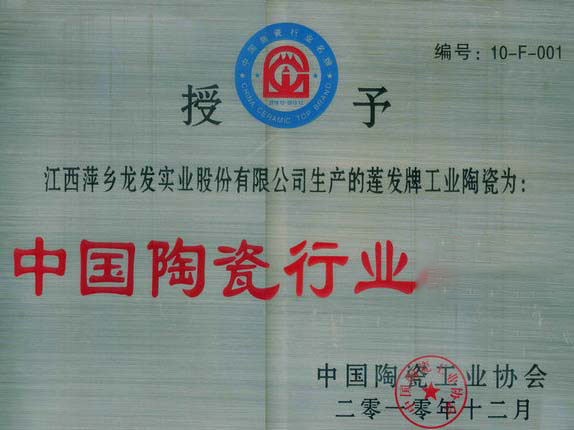 中国陶瓷行业名牌
CHINA CERAMIC TOP BRAND
编号：10-F-001
授 予
江西萍乡龙发实业股份有限公司生产的莲发牌工业陶瓷为：
中国陶瓷行业
中国陶瓷工业协会
二零一零年十二月